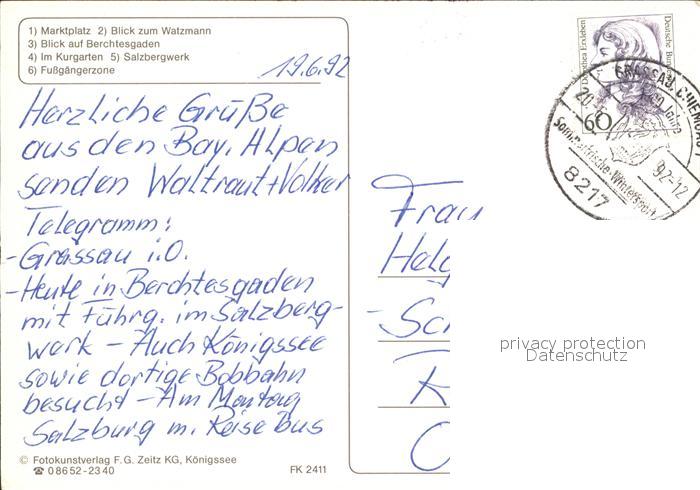 1) Marktplatz 2) Blick zum Watzmann
3) Blick auf Berchtesgaden
4) Im Kurgarten 5) Salzbergwerk
6) Fußgängerzone
19.6.92
Herzliche Grüße
aus den Bay. Alpen
senden Waltraut + Volker
Telegramm:
- Grassau i.O.
- Heute in Berchtesgaden
mit Führg. im Salzberg-
werk - Auch Königssee
sowie dortige Bobbahn
besucht - Am Montag
Salzburg m. Reisebus
© Fotokunstverlag F. G. Zeitz KG, Königssee
☎ 0 86 52 - 23 40
FK 2411
Dorothea Erxleben
60
GRASSAU, CHIEMGAU
Sommerfrische-Wintersport
92-12
8217
Frau
privacy protection
Datenschutz